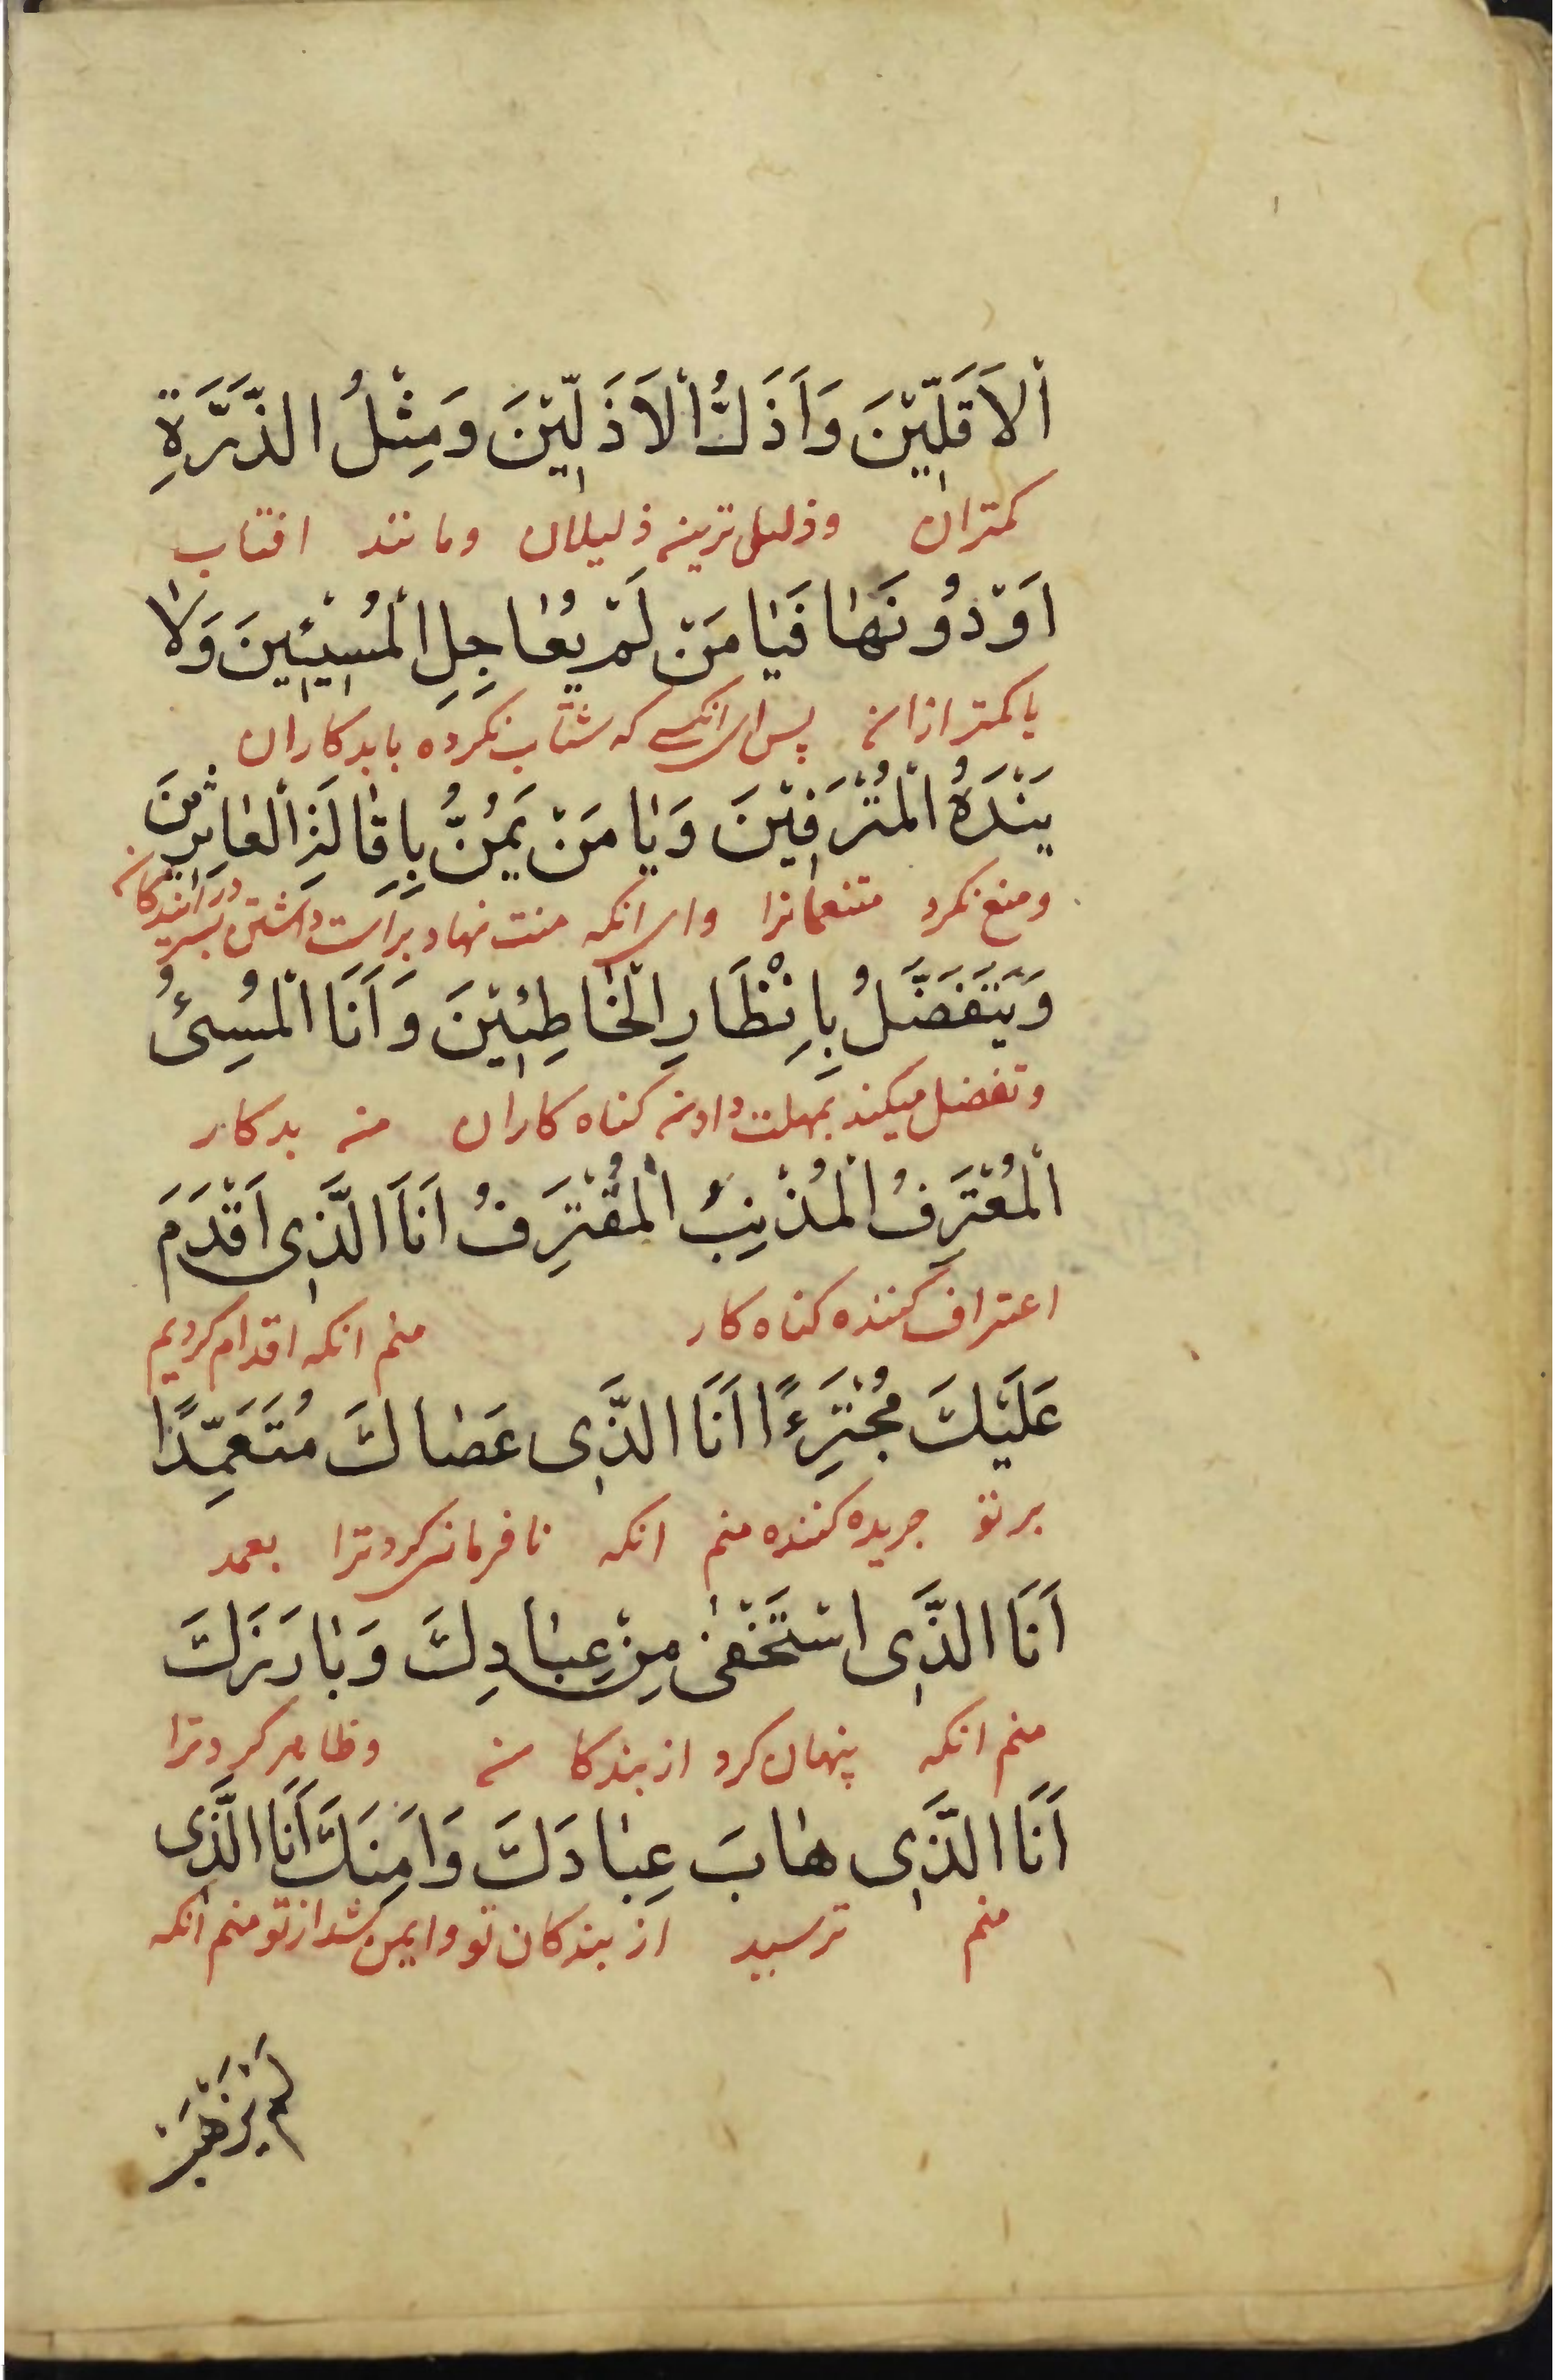 اَلْاَقَلّيْنَ وَاَذَلُّ الْاَذَلّيْنَ وَمِثْلُ الذَّرَّةِ
كمتران وذليل ترين ذليلان ومانند افتاب
اَوْدُونَهٰا فَيٰا مَنْ لَمْ يُعٰاجِلِ الْمُسيئينَ وَلاٰ
يا كمتر از ان پس اى انكسى كه شتاب نكرده با بدكاران
يَنْدَهُ الْمُتْرَفينَ وَيٰا مَنْ يَمُنُّ بِاِقٰالَةِ الْعٰاثِرينَ
ومنع نكرد متنعمانرا واى انكه منت نهاد براست داشتن بسر در ايندكان
وَيَتَفَضَّلُ بِاِنْظَارِ الْخٰاطِئينَ وَاَنَا الْمُسِئُ
وتفضل ميكند بمهلت دادن كناه كاران من بدكار
الْمُعْتَرِفُ الْمُذْنِبُ الْمُقْتَرِفُ اَنَا الَّذى اَقْدَمَ
اعتراف كننده كناه كار منم انكه اقدام كرديم
عَلَيْكَ مُجْتَرِءًا اَنَا الَّذى عَصٰاكَ مُتَعَمِّدًا
بر تو جريده كننده منم انكه نافرمانى كرد ترا بعمد
اَنَا الَّذى اسْتَخْفىٰ مِنْ عِبٰادِكَ وَبٰارَزَكَ
منم انكه پنهان كرد از بندكان وظاهر كرد ترا
اَنَا الَّذى هٰابَ عِبٰادَكَ وَاَمِنَكَ اَنَا الَّذى
منم ترسيد از بندكان تو وايمن شد از تو منم انكه
لَمْ يَرْهَبْ